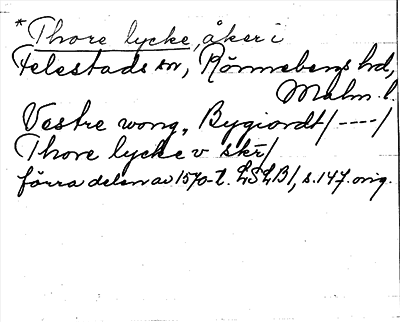 *Thore lycke, åker i
Felestads sn, Rönnebergs hd,
Malm. l.
Vestre wong, Bygiordt/----/
Thore lycke v skr/
förra delen av 1570-t. LSLB1, s. 147. orig.